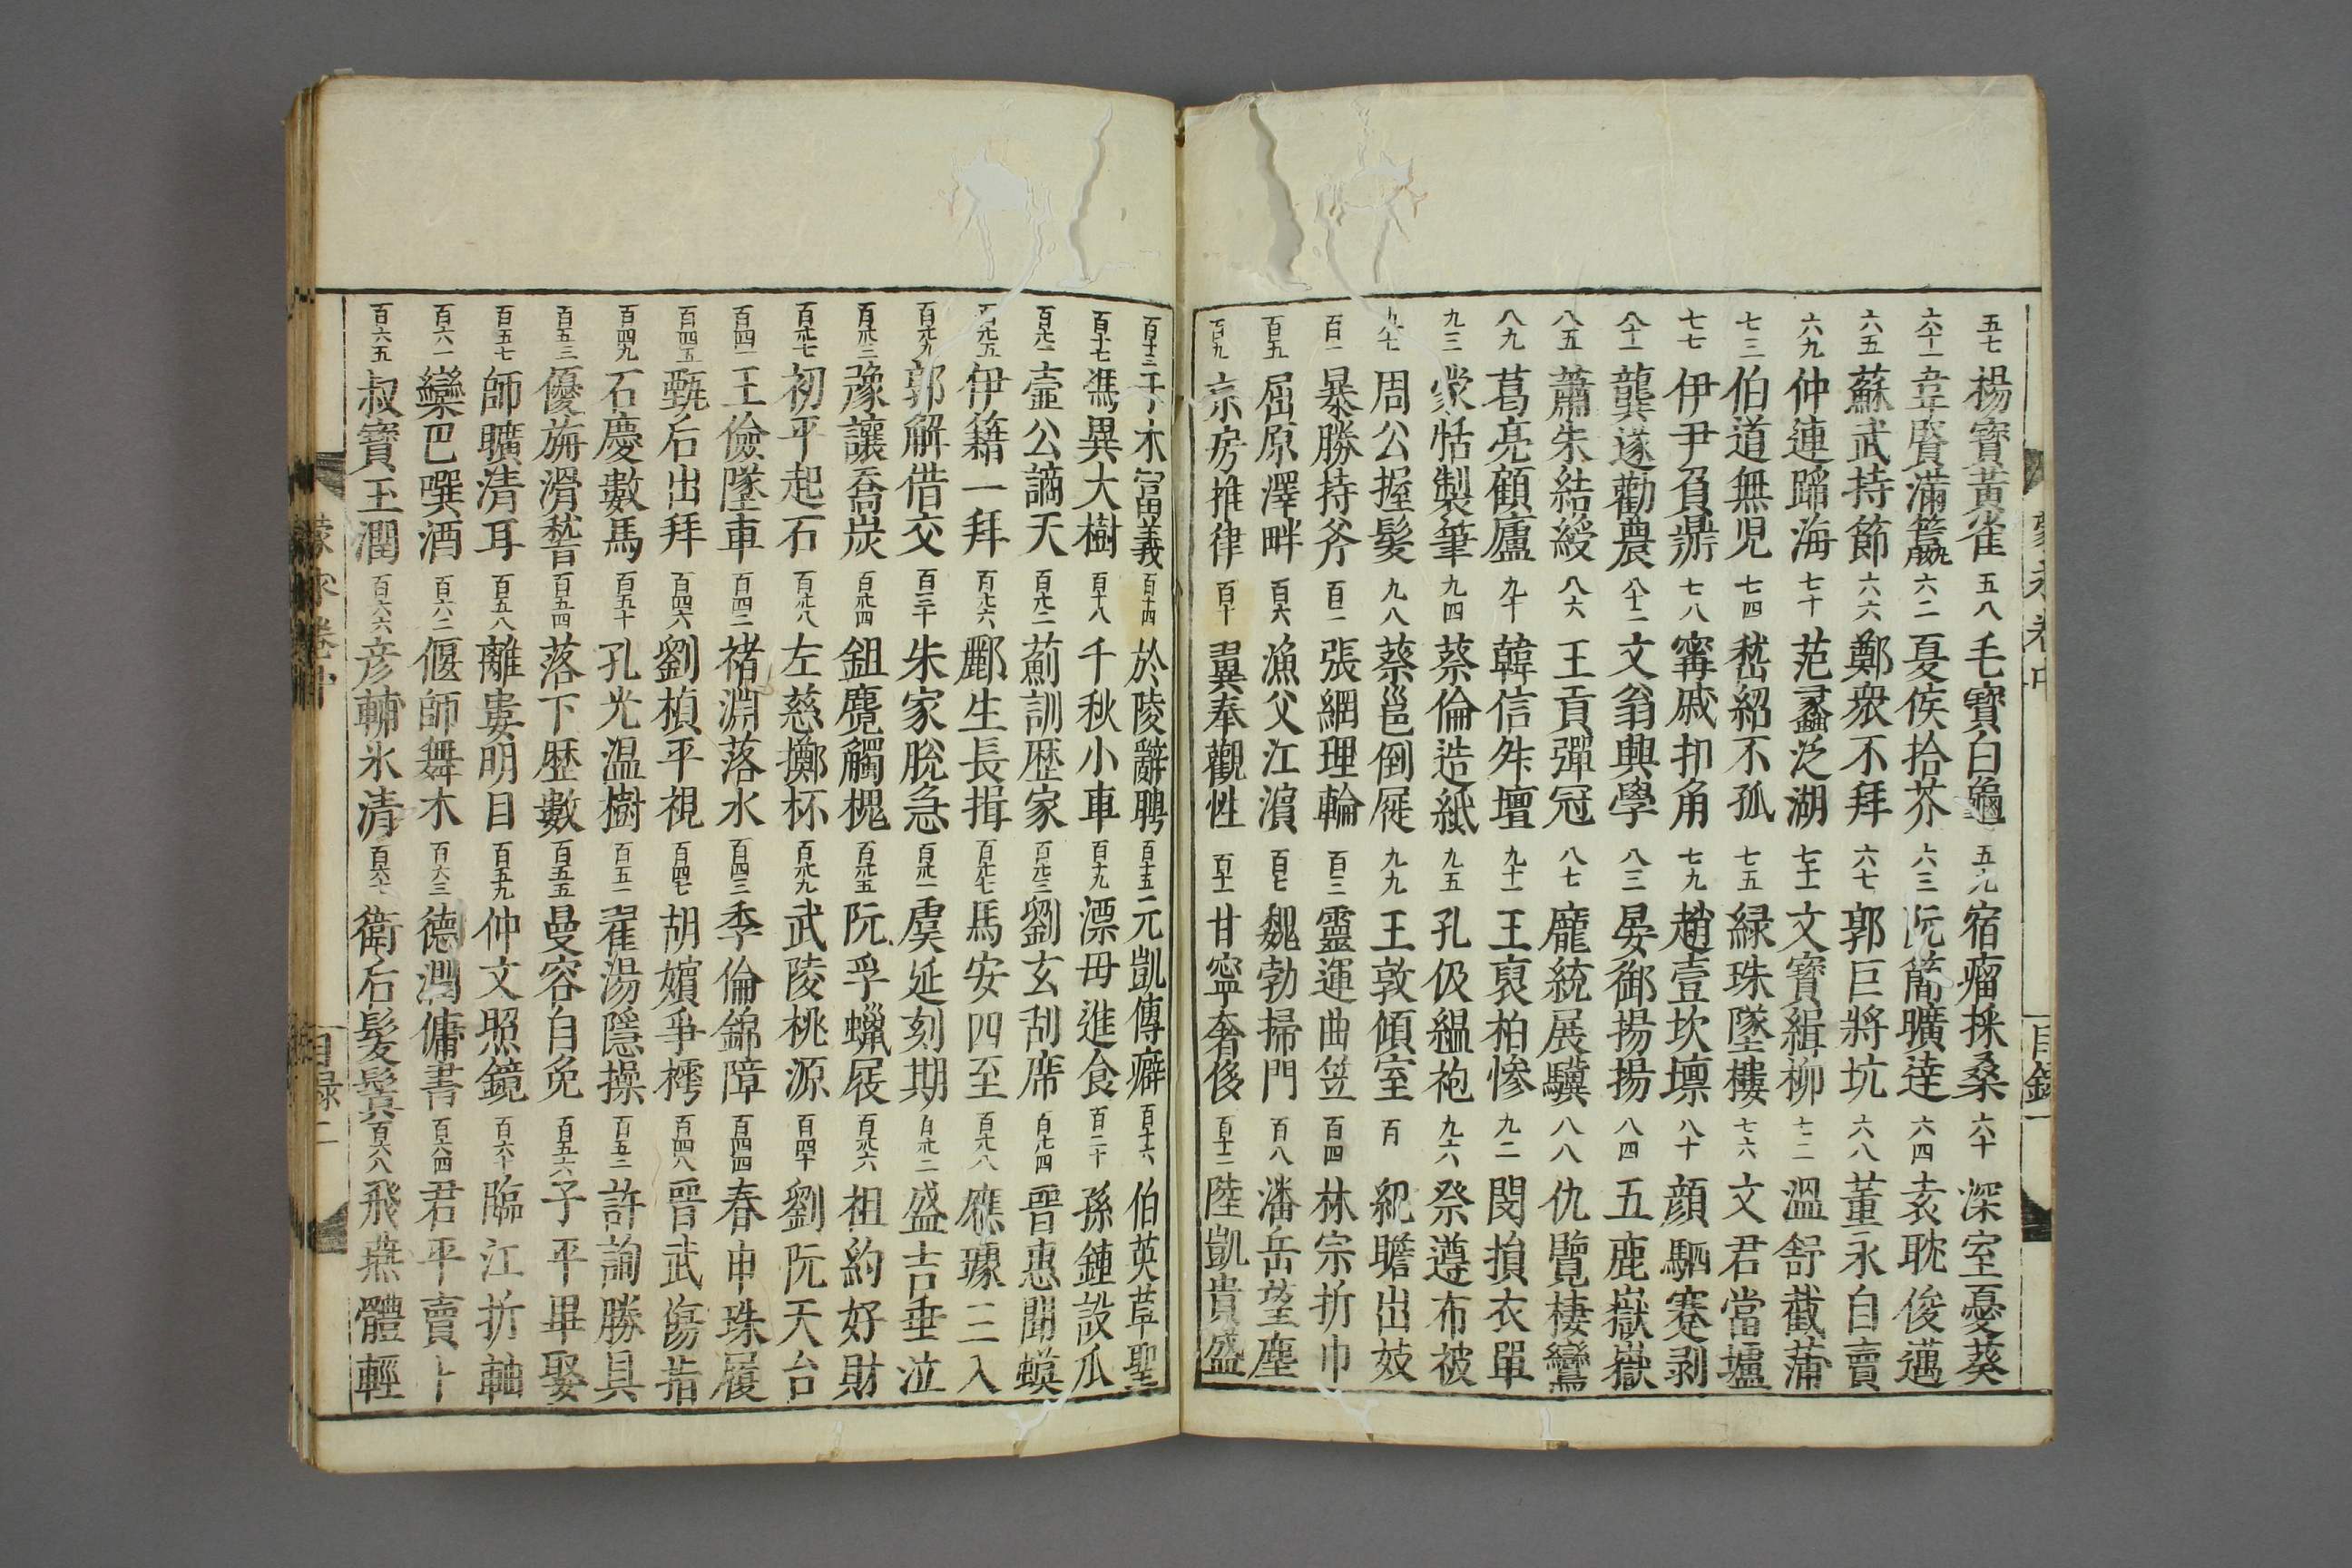 五七 楊寶黄雀 五八 毛寶白龜 五九 宿瘤採桑 六十 漆室憂葵
六十一 韋賢滿籯 六二 夏侯拾芥 六三 阮簡曠達 六四 袁耽俊邁
六五 蘇武持節 六六 鄭衆不拜 六七 郭巨將坑 六八 董永自賣
六九 仲連蹈海 七十 范蠡泛湖 七十一 文寶緝柳 七十二 溫舒截蒲
七三 伯道無児 七四 嵇紹不孤 七五 緑珠墜樓 七六 文君當壚
七七 伊尹負鼎 七八 甯戚扣角 七九 趙壹坎壈 八十 顔駟蹇剥
八十一 龔遂勸農 八十二 文翁興學 八三 晏御揚揚 八四 五鹿嶽嶽
八五 蕭朱結綬 八六 王貢彈冠 八七 龐統展驥 八八 仇覽棲鸞
八九 葛亮顧廬 九十 韓信舛壇 九十一 王裒柏惨 九二 閔損衣單
九三 蒙恬製筆 九四 蔡倫造紙 九五 孔伋緼袍 九六 祭遵布被
九七 周公握髪 九八 蔡邕倒屣 九九 王敦傾室 百 紀瞻出妓
百一 暴勝持斧 百二 張綱理輪 百三 靈運曲笠 百四 林宗折巾
百五 屈原澤畔 百六 漁父江濱 百七 魏勃掃門 百八 潘岳望塵
百九 京房推律 百十 翼奉觀性 百十一 甘寧奢侈 百十二 陸凱貴盛
蒙求卷中 目録一
百十三 干木富義 百十四 於陵辭聘 百十五 元凱傳癖 百十六 伯英草聖
百十七 馮異大樹 百十八 千秋小車 百十九 漂母進食 百二十 孫鍾設瓜
百廿一 壺公謫天 百廿二 薊訓歴家 百廿三 劉玄刮席 百廿四 晉惠聞蟆
百廿五 伊籍一拜 百廿六 酈生長揖 百廿七 馬安四至 百廿八 應璩三入
百廿九 郭解借交 百三十 朱家脫急 百卅一 虞延刻期 百卅二 盛吉垂泣
百卅三 豫讓吞炭 百卅四 鉏麑觸槐 百卅五 阮孚蠟屐 百卅六 祖約好財
百卅七 初平起石 百卅八 左慈擲杯 百卅九 武陵桃源 百四十 劉阮天台
百四一 王儉墜車 百四二 褚淵落水 百四三 季倫錦障 百四四 春申珠履
百四五 甄后出拜 百四六 劉楨平視 百四七 胡嬪爭樗 百四八 晉武傷指
百四九 石慶數馬 百五十 孔光温樹 百五一 翟湯隱操 百五二 許詢勝具
百五三 優旃滑稽 百五四 落下歴數 百五五 曼容自免 百五六 子平畢娶
百五七 師曠清耳 百五八 離婁明目 百五九 仲文照鏡 百六十 臨江折軸
百六一 欒巴噀酒 百六二 偃師舞木 百六三 德潤傭書 百六四 君平賣卜
百六五 叔寶玉潤 百六六 彦輔氷清 百六七 衛后髪鬒 百六八 飛燕體輕
蒙求卷中 目録二